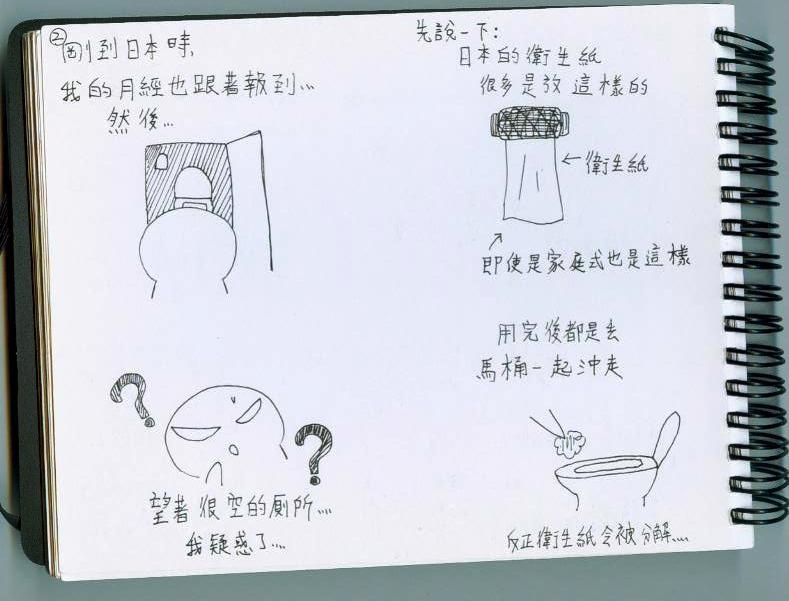 ②
剛到日本時,
我的月經也跟著報到...
然後...
望著很空的廁所...
我疑惑了...
先說一下:
日本的衛生紙
很多是放這樣的
←衛生紙
即使是家庭式也是這樣
用完後都是丟
馬桶一起沖走
反正衛生紙會被分解...